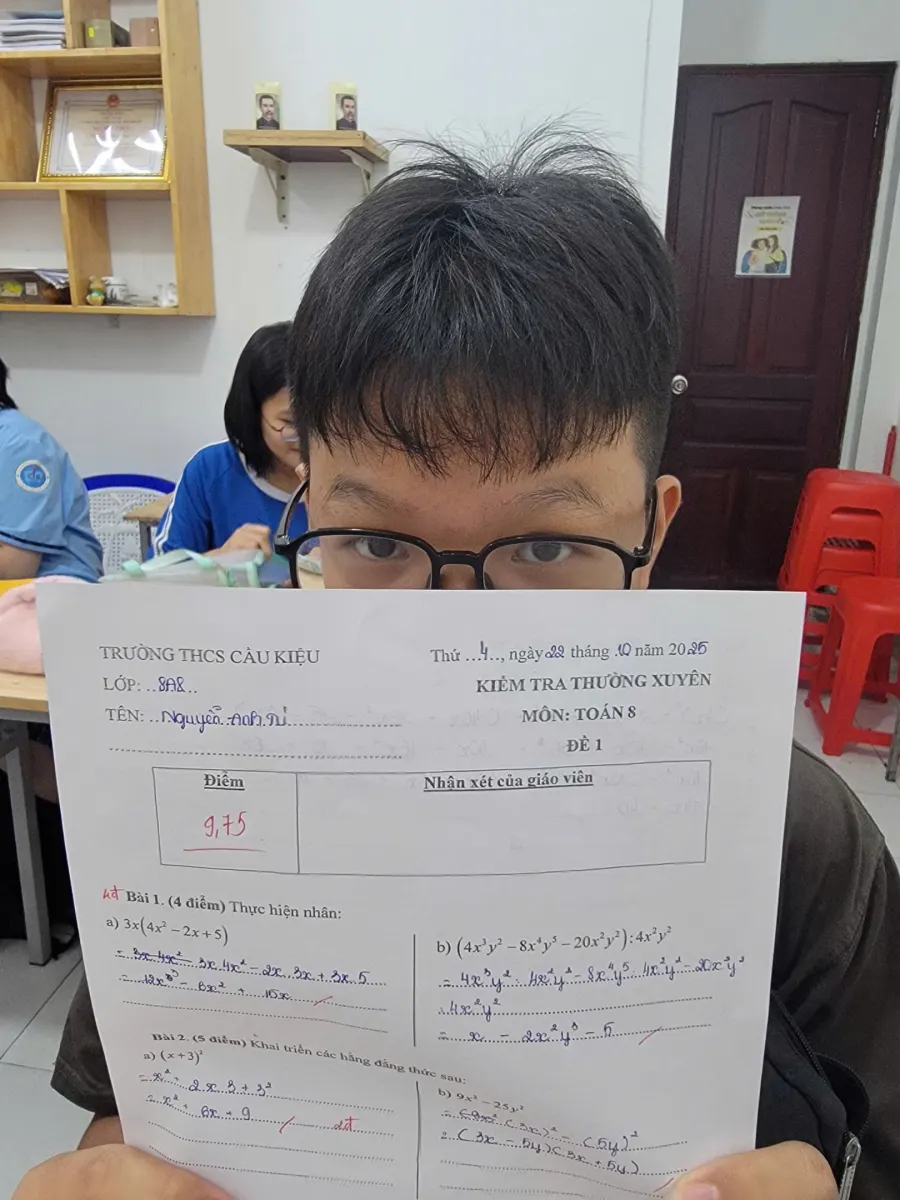 TRƯỜNG THCS CẦU KIỆU
Thứ ...4..., ngày 22 tháng .10 năm 2025
LỚP: ..8A8..
KIỂM TRA THƯỜNG XUYÊN
TÊN: ..Nguyễn Anh
MÔN: TOÁN 8
ĐỀ 1
Điểm
Nhận xét của giáo viên
9,75
4đ Bài 1. (4 điểm) Thực hiện nhân:
a) 3x(4x² − 2x + 5)
= 3x.4x² 3x.4x² − 2x.3x + 3x.5
= 12x³ − 6x² + 15x
b) (4x³y² − 8x⁴y⁵ − 20x²y²) : 4x²y²
= 4x³y² : 4x²y² − 8x⁴y⁵ : 4x²y² − 20x²y²
: 4x²y²
= x − 2x²y³ − 5
Bài 2. (5 điểm) Khai triển các hằng đẳng thức sau:
a) (x + 3)²
= x² + 2.x.3 + 3²
= x² + 6x + 9
2đ
b) 9x² − 25y²
= (3x)² − (5y)²
= (3x − 5y)(3x + 5y)